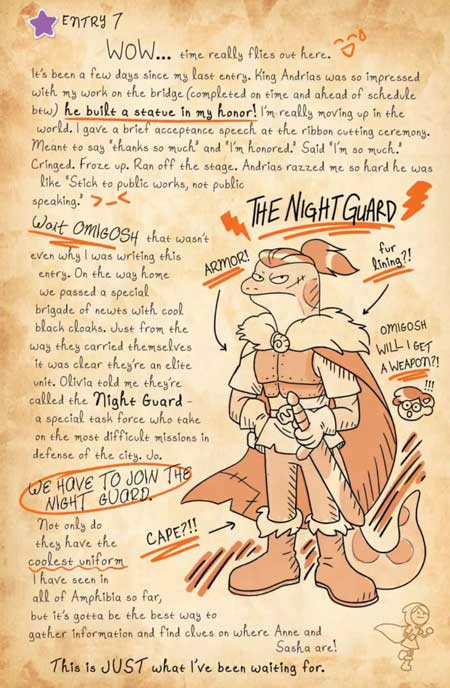 ENTRY 7
WOW... time really flies out here.
It's been a few days since my last entry. King Andrias was so impressed
with my work on the bridge (completed on time and ahead of schedule
btw) he built a statue in my honor! I'm really moving up in the
world. I gave a brief acceptance speech at the ribbon cutting ceremony.
Meant to say "thanks so much" and "I'm honored." Said "I'm so much."
Cringed. Froze up. Ran off the stage. Andrias razzed me so hard he was
like "Stick to public works, not public
speaking." >_<
Wait OMIGOSH that wasn't
even why I was writing this
entry. On the way home
we passed a special
brigade of newts with cool
black cloaks. Just from the
way they carried themselves
it was clear they're an elite
unit. Olivia told me they're
called the Night Guard -
a special task force who take
on the most difficult missions in
defense of the city. Jo.
WE HAVE TO JOIN THE
NIGHT GUARD.
Not only do
they have the
coolest uniform
I have seen in
all of Amphibia so far,
but it's gotta be the best way to
gather information and find clues on where Anne and
Sasha are!
This is JUST what I've been waiting for.
THE NIGHT GUARD
ARMOR!
fur
lining?!
OMIGOSH
WILL I GET
A WEAPON?!
!!!
CAPE?!!